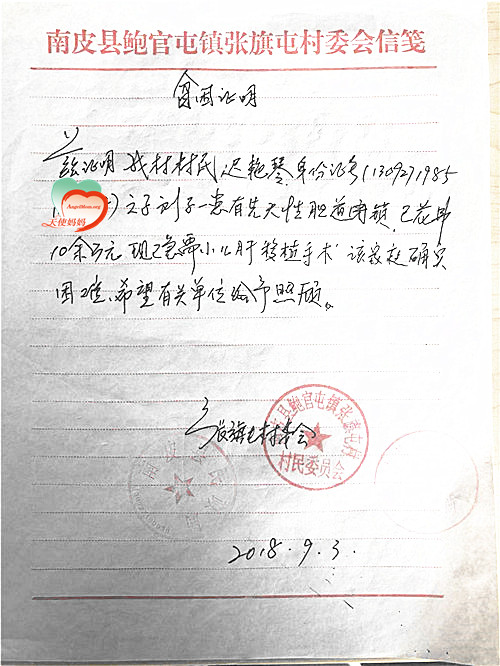 南皮县鲍官屯镇张旗屯村委会信笺
贫困证明
兹证明我村村民迟艳琴，身份证号(1309271985
)之子刘子一患有先天性胆道闭锁，已花费
10余万元，现急需小儿肝移植手术，该家庭确实
困难，希望有关单位给予照顾。
AngelMom.org
天使妈妈
张旗屯村委会
县鲍官屯镇张旗屯村
村民委员会
南皮
2018.9.3.